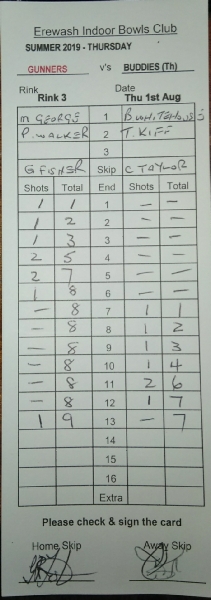 Erewash Indoor Bowls Club
SUMMER 2019 - THURSDAY
GUNNERS v's BUDDIES (Th)
Rink Date
Rink 3 Thu 1st Aug
M GEORGE 1
P. WALKER 2 T. KIFF
3
G FISHER Skip C TAYLOR
Shots Total End Shots Total
1 1 1 — —
1 2 2 — —
1 3 3 — —
2 5 4 — —
2 7 5 — —
1 8 6 — —
— 8 7 1 1
— 8 8 1 2
— 8 9 1 3
— 8 10 1 4
— 8 11 2 6
— 8 12 1 7
1 9 13 — 7
14
15
16
Extra
Please check & sign the card
Home Skip Away Skip